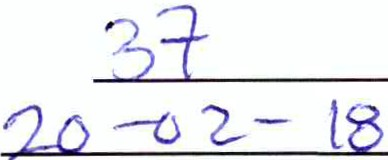 37
20-02-18